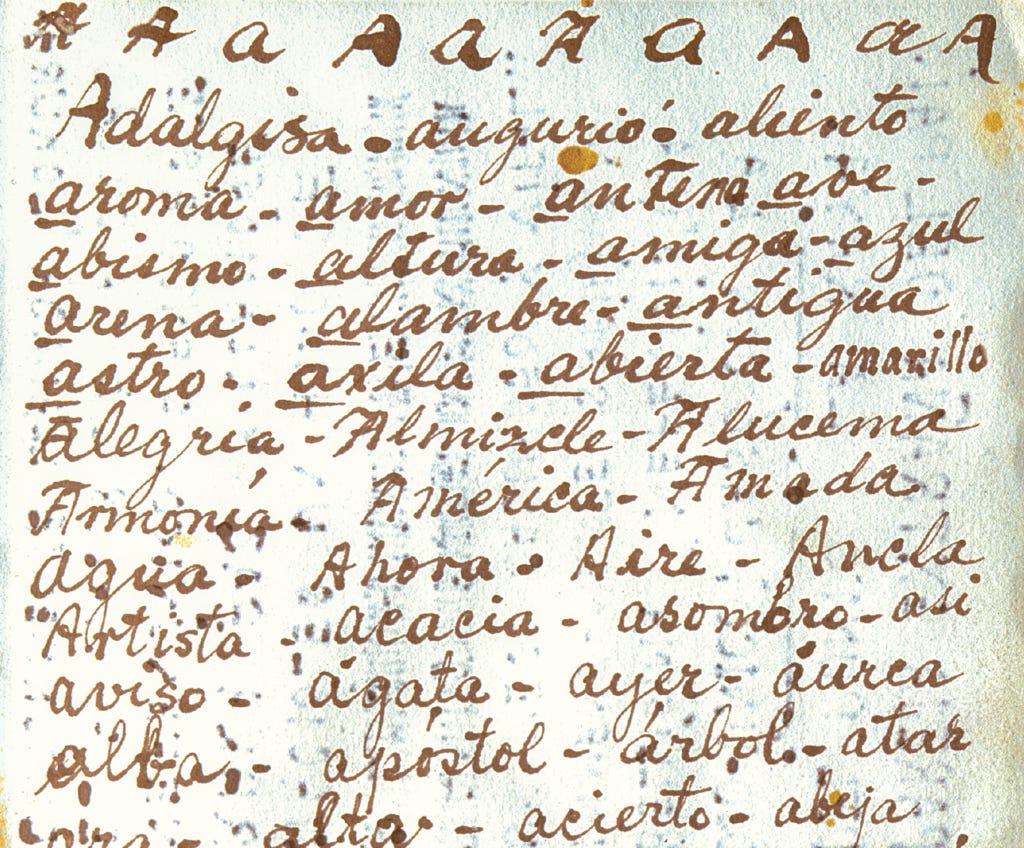 A A a A a A a A a A
Adalgisa - augurió - aliento
aroma - amor - antena ave -
abismo - altura - amiga - azul
arena - alambre - antigua
astro - axila - abierta - amarillo
Alegría - Almizcle - Alucema
Armonía - América - Amada
agua - Ahora - Aire - Ancla
Artista - acacia - asombro - asi
aviso - ágata - ayer - áurea
alba, - apóstol - árbol - atar
alta - acierto - abeja